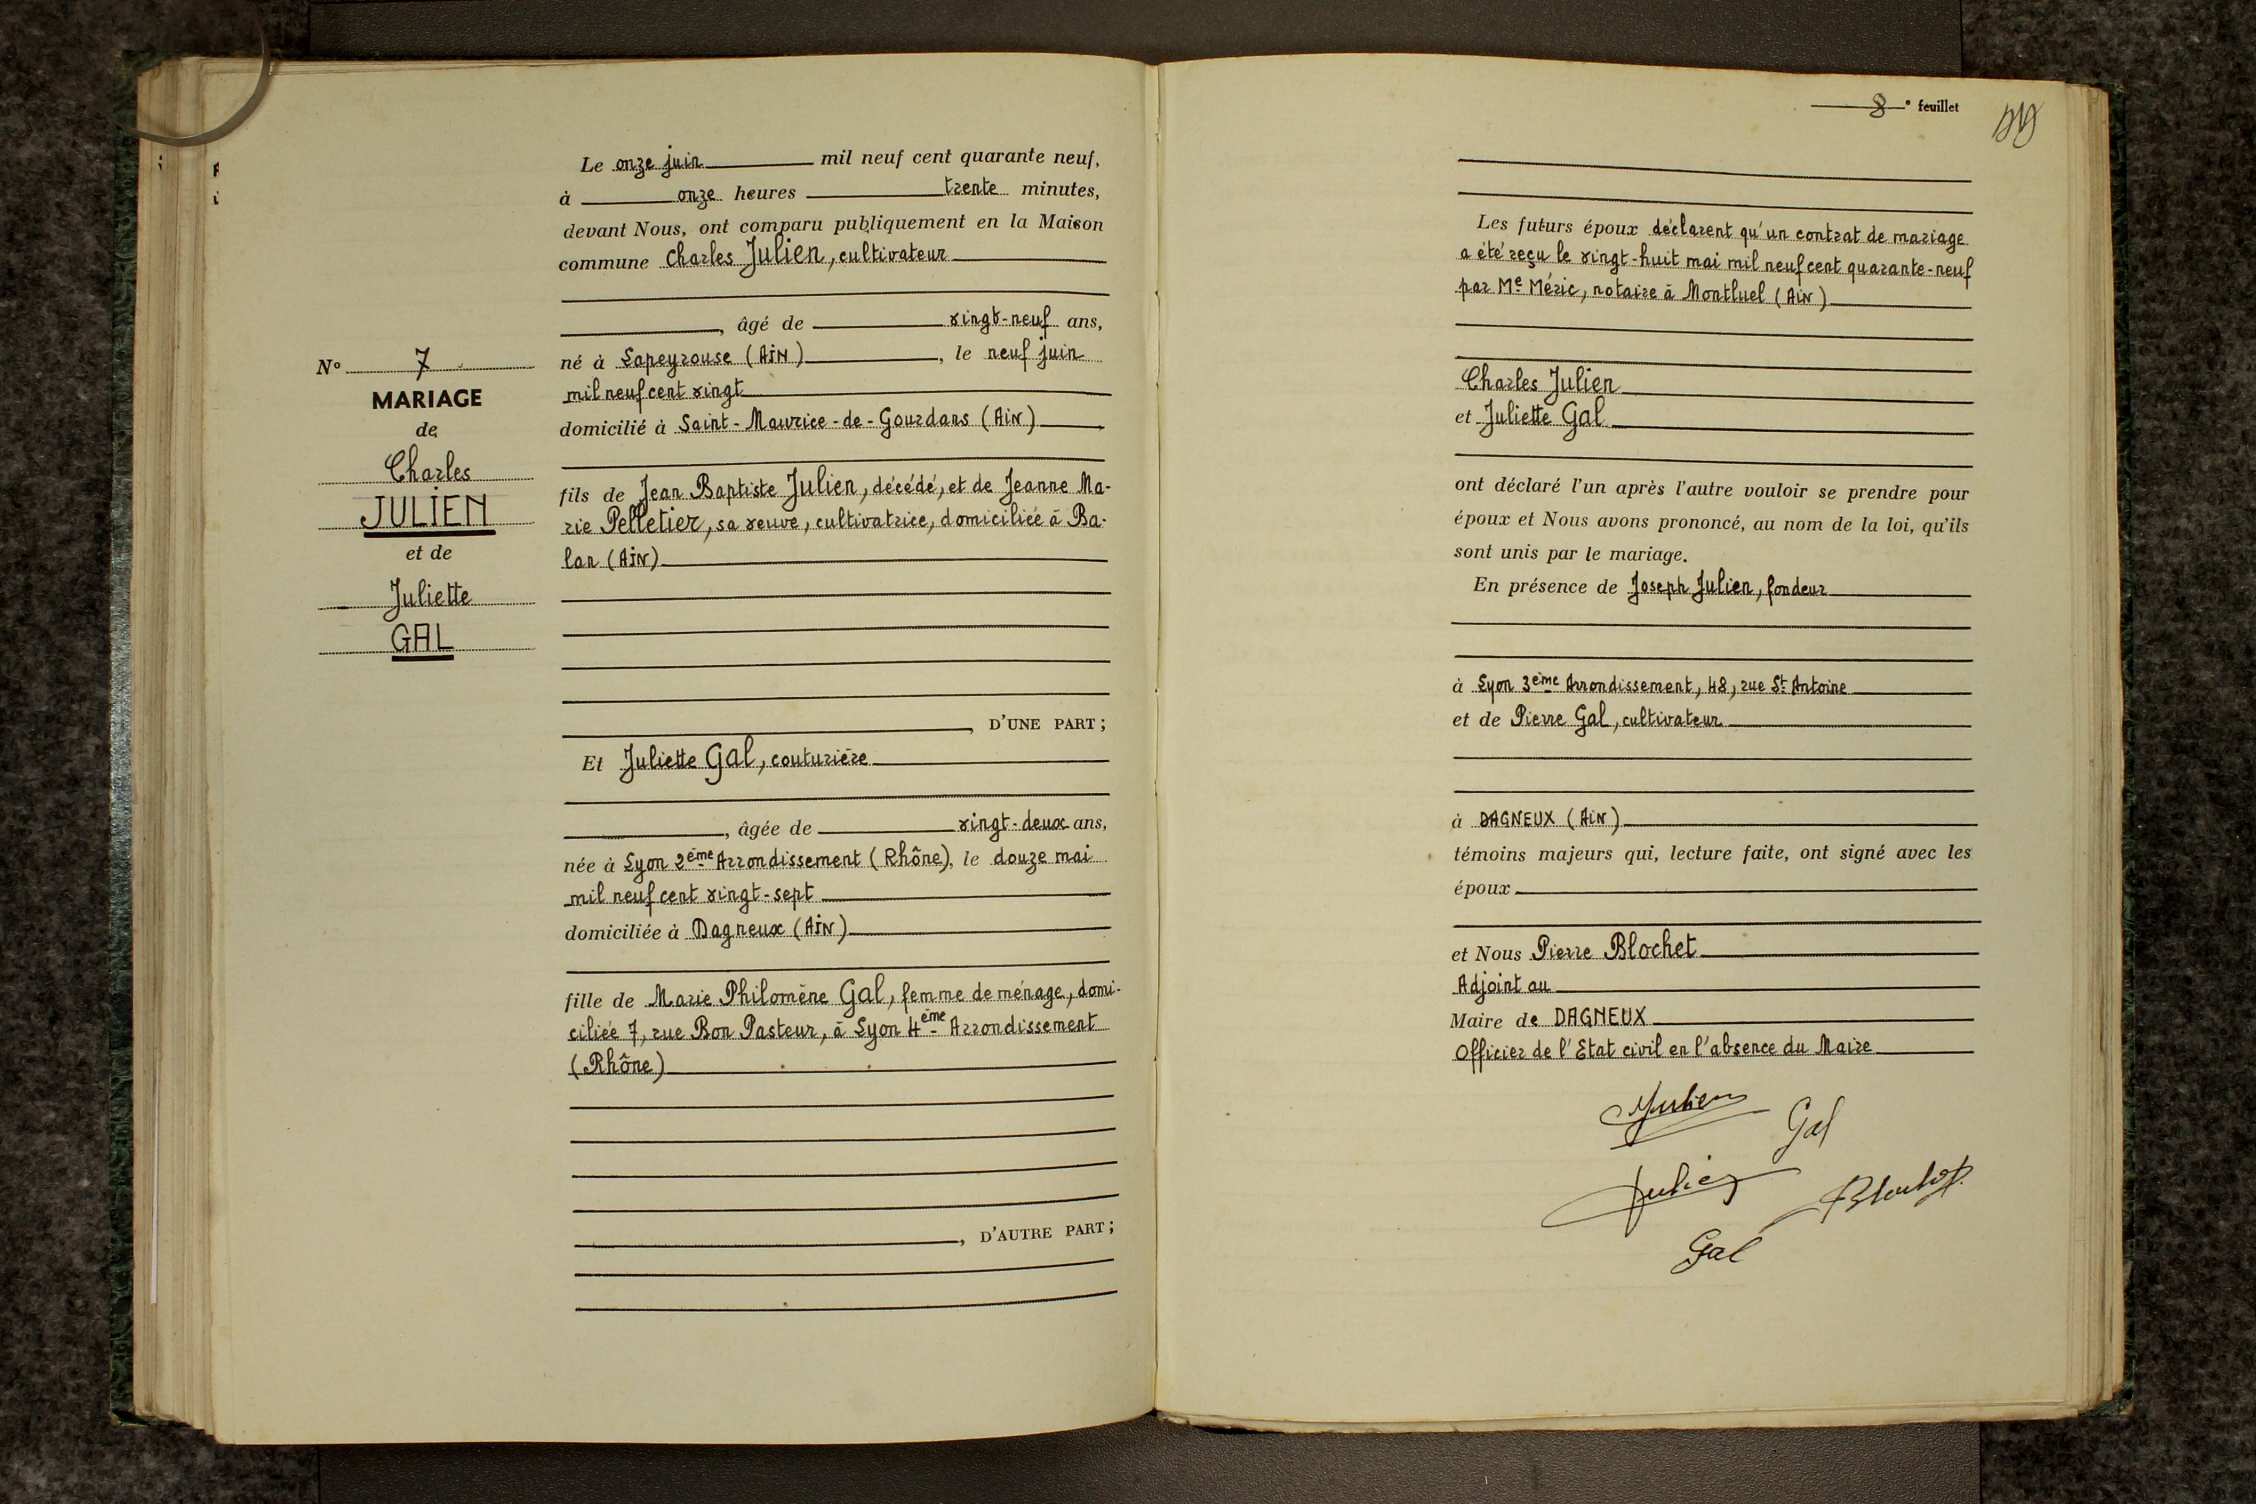 N° 7
MARIAGE
de
Charles
JULIEN
et de
Juliette
GAL
Le onze juin mil neuf cent quarante neuf,
à onze heures trente minutes,
devant Nous, ont comparu publiquement en la Maison
commune Charles Julien, cultivateur
, âgé de vingt-neuf ans,
né à Lapeyrouse (AIN), le neuf juin
mil neuf cent vingt
domicilié à Saint-Maurice-de-Gourdans (AIN)
fils de Jean Baptiste Julien, décédé, et de Jeanne Ma-
rie Pelletier, sa veuve, cultivatrice, domiciliée à Ba-
lan (AIN)
, D'UNE PART ;
Et Juliette Gal, couturière
, âgée de vingt-deux ans,
née à Lyon 2ème Arrondissement (Rhône), le douze mai
mil neuf cent vingt-sept
domiciliée à Dagneux (AIN)
fille de Marie Philomène Gal, femme de ménage, domi-
ciliée 7, rue Bon Pasteur, à Lyon 4ème Arrondissement
(Rhône)
, D'AUTRE PART ;
8e feuillet
Les futurs époux déclarent qu'un contrat de mariage
a été reçu le vingt-huit mai mil neuf cent quarante-neuf
par Me Méric, notaire à Montluel (AIN)
Charles Julien
et Juliette Gal
ont déclaré l'un après l'autre vouloir se prendre pour
époux et Nous avons prononcé, au nom de la loi, qu'ils
sont unis par le mariage.
En présence de Joseph Julien, fondeur
à Lyon 3ème Arrondissement, 48, rue St Antoine
et de Pierre Gal, cultivateur
à DAGNEUX (AIN)
témoins majeurs qui, lecture faite, ont signé avec les
époux
et Nous Pierre Blochet
Adjoint au
Maire de DAGNEUX
Officier de l'Etat civil en l'absence du Maire
Julien
Gal
Julien
Blochet
Gal